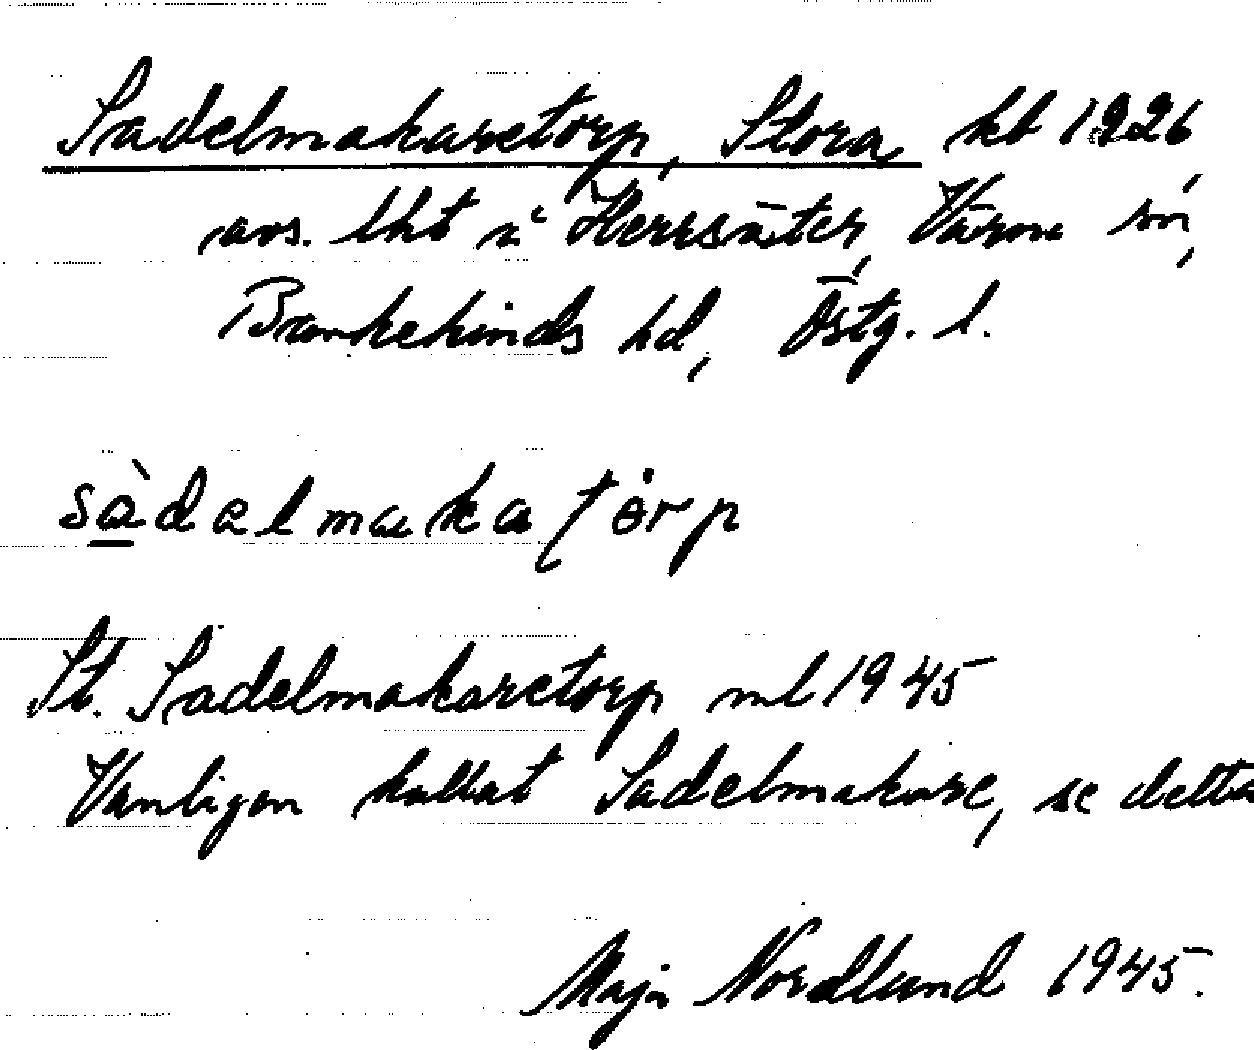 Sadelmakaretorp, Stora, kb 1926
avs. lht å Herrsäter, Värna sn,
Bankekinds hd, Östg. l.
sàdelmakatȯrp
St. Sadelmakaretorp ml 1945
Vanligen kallat Sadelmakare, se detta
Maja Nordlund 1945.